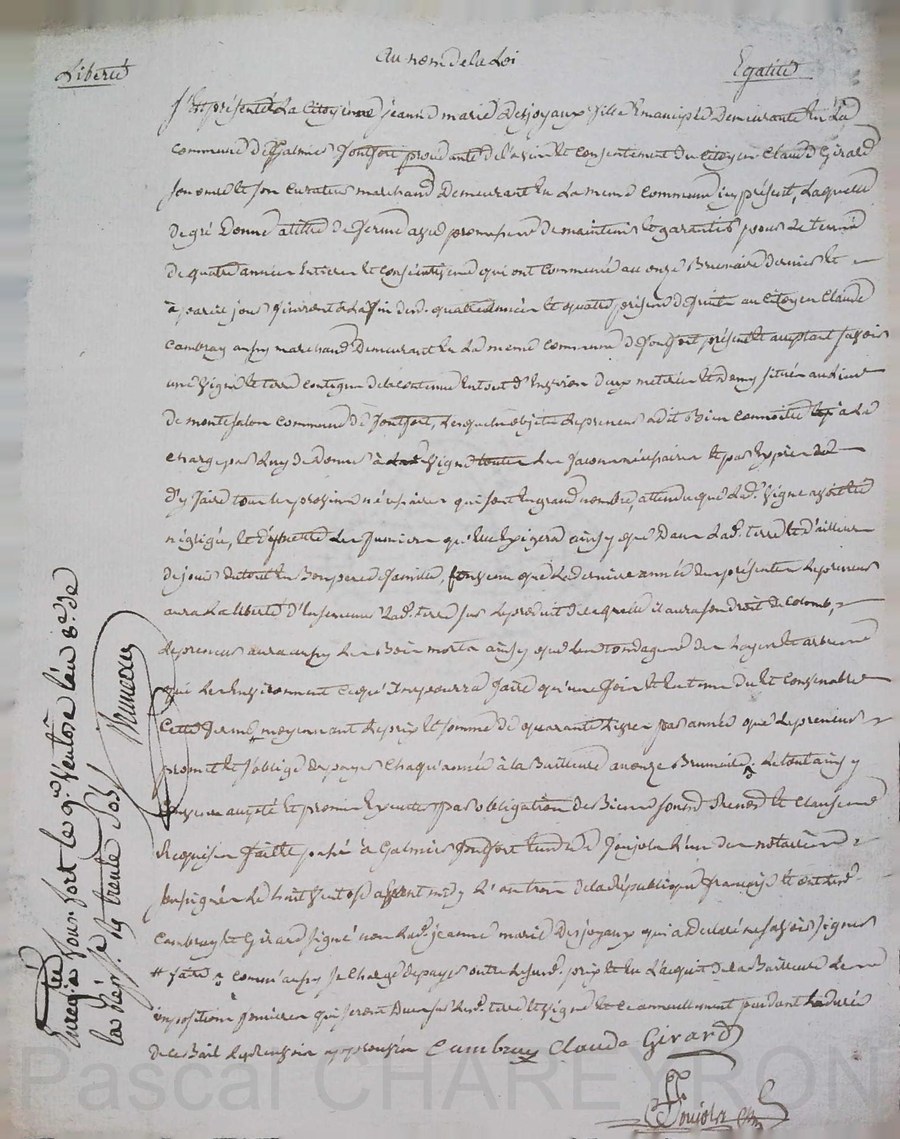 Liberté
Au nom de la Loi
Egalité
S'est présentée La Citoyenne jeanne marie Desjoyaux fille Emancipée Demeurante En La
commune de Galmier fontfort procedante de l'avis et Consentement du Citoyen Claude Girard
son oncle et son Curateur marchand Demeurant En La meme commune icy présent, Laquelle
de gré Donne a titre de ferme avec promesse de maintenir et garantir pour Le terme
de quatre années Entieres et Consécutives qui ont commencé au onze Brumaire dernier et
à pareil jour finiront à La fin desd. quatre années et quatre prises de fruits au Citoyen Claude
Cambray aussy marchand Demeurant En La meme commune de fontfort présent et acceptant savoir
une vigne et terre contigue de la contenue En tout d'Environ deux meterées et demy située au Lieu
de montesalon commune de fontfort, Lesquels objets Le preneur a dit Bien connoitre à La
charge par Luy de Donner à vigne toutes Les façons nécessaires et par Exprès
d'y faire tous les provins nécessaires qui sont En grand nombre, attendu que Lad. vigne a été
négligée, et Les fumiers qu'elle Exigera ainsy que Dans Lad. terre et d'ailleurs
de jouir du tout En Bon pere de famille, convenu que La derniere année des présentes Le preneur
aura La liberté d'Ensemencer Lad. terre sur Le produit de Laquelle il aura son droit de Colomb,
Le preneur aura aussy Les Bois morts ainsy que Les tondages des hayes et arbres
qui Les Environnent ce qu'il ne pourra faire qu'une fois et En tems dû et Convenable
Cette ferme moyennant Le prix et somme de quarante Livres par année que Le preneur
promet et s'oblige de payer Chaqu'année à La Bailleuse au onze Brumaire. Le tout ainsy
convenu accepté et promis Executer par obligation de Biens et Clauses
Requises faitte passé à Galmier fontfort Etude de Poujols L'un des notaires
soussignés Le huit ventose La République française et ont Les d.
Cambray et Girard signé non Lad. jeanne marie Desjoyaux qui a Declaré ne savoir signer
comm'aussy se Charge de payer outre Le susd. prix et En L'acquit de La Bailleuse Les
impositions foncieres qui seront Dues sur Lesd. terre et vigne et ce annuellement pendant La durée
de ce Bail Le Renvoy approuvés Cambray Claude Girard
Poujols
Enregt. à Fontfort le 9e Ventose l'an 8e. de
la Rép. Rx trente sols
Pascal CHAREYRON